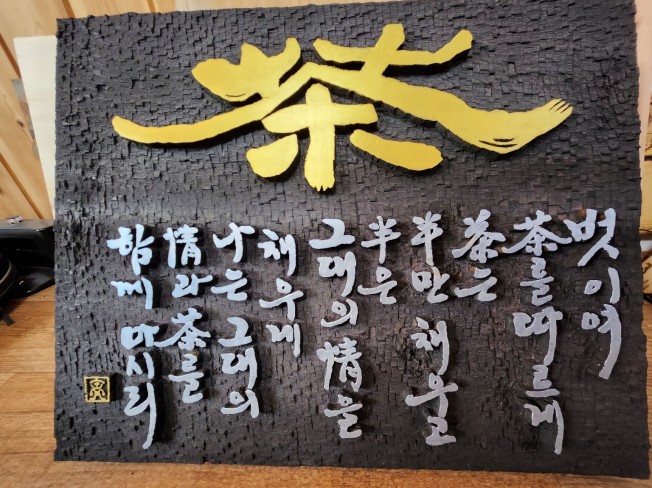 茶
벗이여
茶를 따르게
茶는
半만 채우고
半은
그대의 情을
채우게
나은 그대의
情과 茶를
함께 마시리